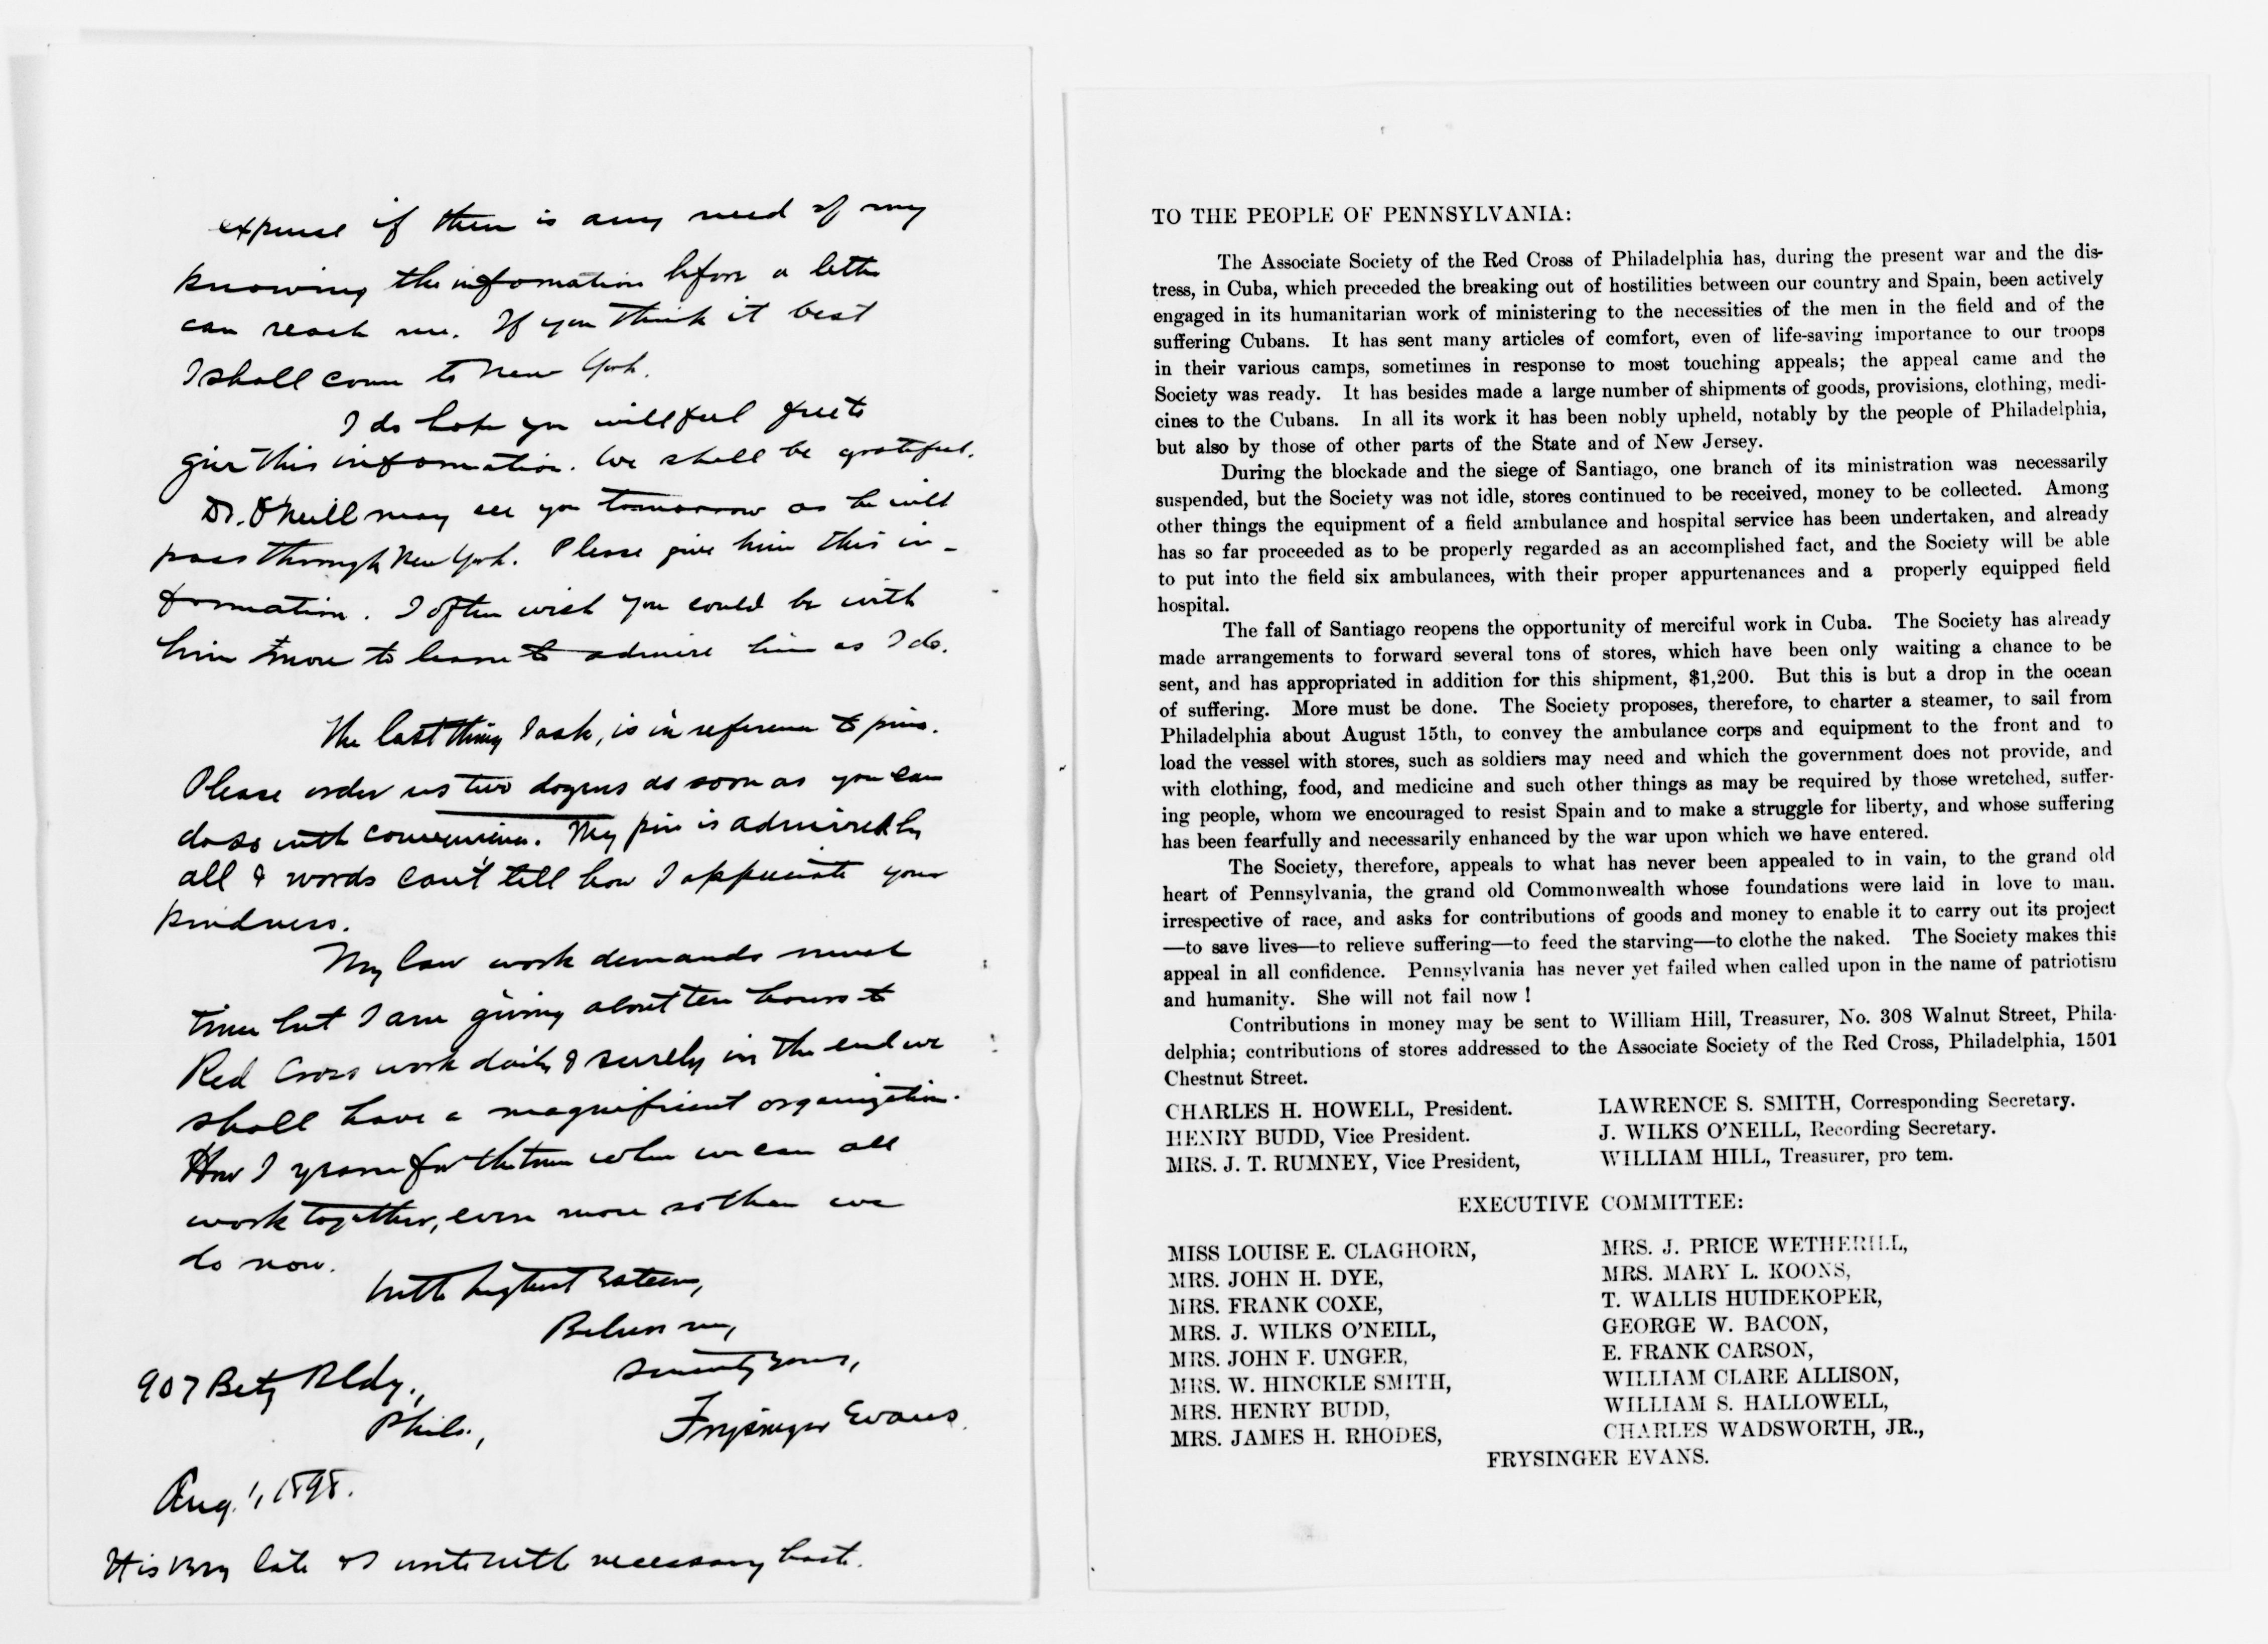 expense if there is any need of my
knowing the information before a letter
can reach me. If you think it best
I shall come to New York.
I do hope you will feel free to
give this information. We shall be grateful.
Dr. O'Neill may see you tomorrow as he will
pass through New York. Please give him this in-
formation. I often wish you could be with
him more to learn to admire him as I do.
The last thing I ask, is in reference to pins.
Please order us two dozens as soon as you can
do so with convenience. My pin is admired by
all & words can't tell how I appreciate your
kindness.
My law work demands much
time but I am giving about ten hours to
Red Cross work daily & surely in the end we
shall have a magnificent organization.
How I yearn for the time when we can all
work together, even more so than we
do now.
With highest esteem,
Believe me,
Sincerely yours,
907 Betz Bldg.,
Phila.,
Frysinger Evans.
Aug. 1, 1898.
It is very late & I write with necessary haste.
TO THE PEOPLE OF PENNSYLVANIA:
The Associate Society of the Red Cross of Philadelphia has, during the present war and the dis-
tress, in Cuba, which preceded the breaking out of hostilities between our country and Spain, been actively
engaged in its humanitarian work of ministering to the necessities of the men in the field and of the
suffering Cubans. It has sent many articles of comfort, even of life-saving importance to our troops
in their various camps, sometimes in response to most touching appeals; the appeal came and the
Society was ready. It has besides made a large number of shipments of goods, provisions, clothing, medi-
cines to the Cubans. In all its work it has been nobly upheld, notably by the people of Philadelphia,
but also by those of other parts of the State and of New Jersey.
During the blockade and the siege of Santiago, one branch of its ministration was necessarily
suspended, but the Society was not idle, stores continued to be received, money to be collected. Among
other things the equipment of a field ambulance and hospital service has been undertaken, and already
has so far proceeded as to be properly regarded as an accomplished fact, and the Society will be able
to put into the field six ambulances, with their proper appurtenances and a properly equipped field
hospital.
The fall of Santiago reopens the opportunity of merciful work in Cuba. The Society has already
made arrangements to forward several tons of stores, which have been only waiting a chance to be
sent, and has appropriated in addition for this shipment, $1,200. But this is but a drop in the ocean
of suffering. More must be done. The Society proposes, therefore, to charter a steamer, to sail from
Philadelphia about August 15th, to convey the ambulance corps and equipment to the front and to
load the vessel with stores, such as soldiers may need and which the government does not provide, and
with clothing, food, and medicine and such other things as may be required by those wretched, suffer-
ing people, whom we encouraged to resist Spain and to make a struggle for liberty, and whose suffering
has been fearfully and necessarily enhanced by the war upon which we have entered.
The Society, therefore, appeals to what has never been appealed to in vain, to the grand old
heart of Pennsylvania, the grand old Commonwealth whose foundations were laid in love to man.
irrespective of race, and asks for contributions of goods and money to enable it to carry out its project
—to save lives—to relieve suffering—to feed the starving—to clothe the naked. The Society makes this
appeal in all confidence. Pennsylvania has never yet failed when called upon in the name of patriotism
and humanity. She will not fail now !
Contributions in money may be sent to William Hill, Treasurer, No. 308 Walnut Street, Phila-
delphia; contributions of stores addressed to the Associate Society of the Red Cross, Philadelphia, 1501
Chestnut Street.
CHARLES H. HOWELL, President.
HENRY BUDD, Vice President.
MRS. J. T. RUMNEY, Vice President,
LAWRENCE S. SMITH, Corresponding Secretary.
J. WILKS O'NEILL, Recording Secretary.
WILLIAM HILL, Treasurer, pro tem.
EXECUTIVE COMMITTEE:
MISS LOUISE E. CLAGHORN,
MRS. JOHN H. DYE,
MRS. FRANK COXE,
MRS. J. WILKS O'NEILL,
MRS. JOHN F. UNGER,
MRS. W. HINCKLE SMITH,
MRS. HENRY BUDD,
MRS. JAMES H. RHODES,
MRS. J. PRICE WETHERILL,
MRS. MARY L. KOONS,
T. WALLIS HUIDEKOPER,
GEORGE W. BACON,
E. FRANK CARSON,
WILLIAM CLARE ALLISON,
WILLIAM S. HALLOWELL,
CHARLES WADSWORTH, JR.,
FRYSINGER EVANS.